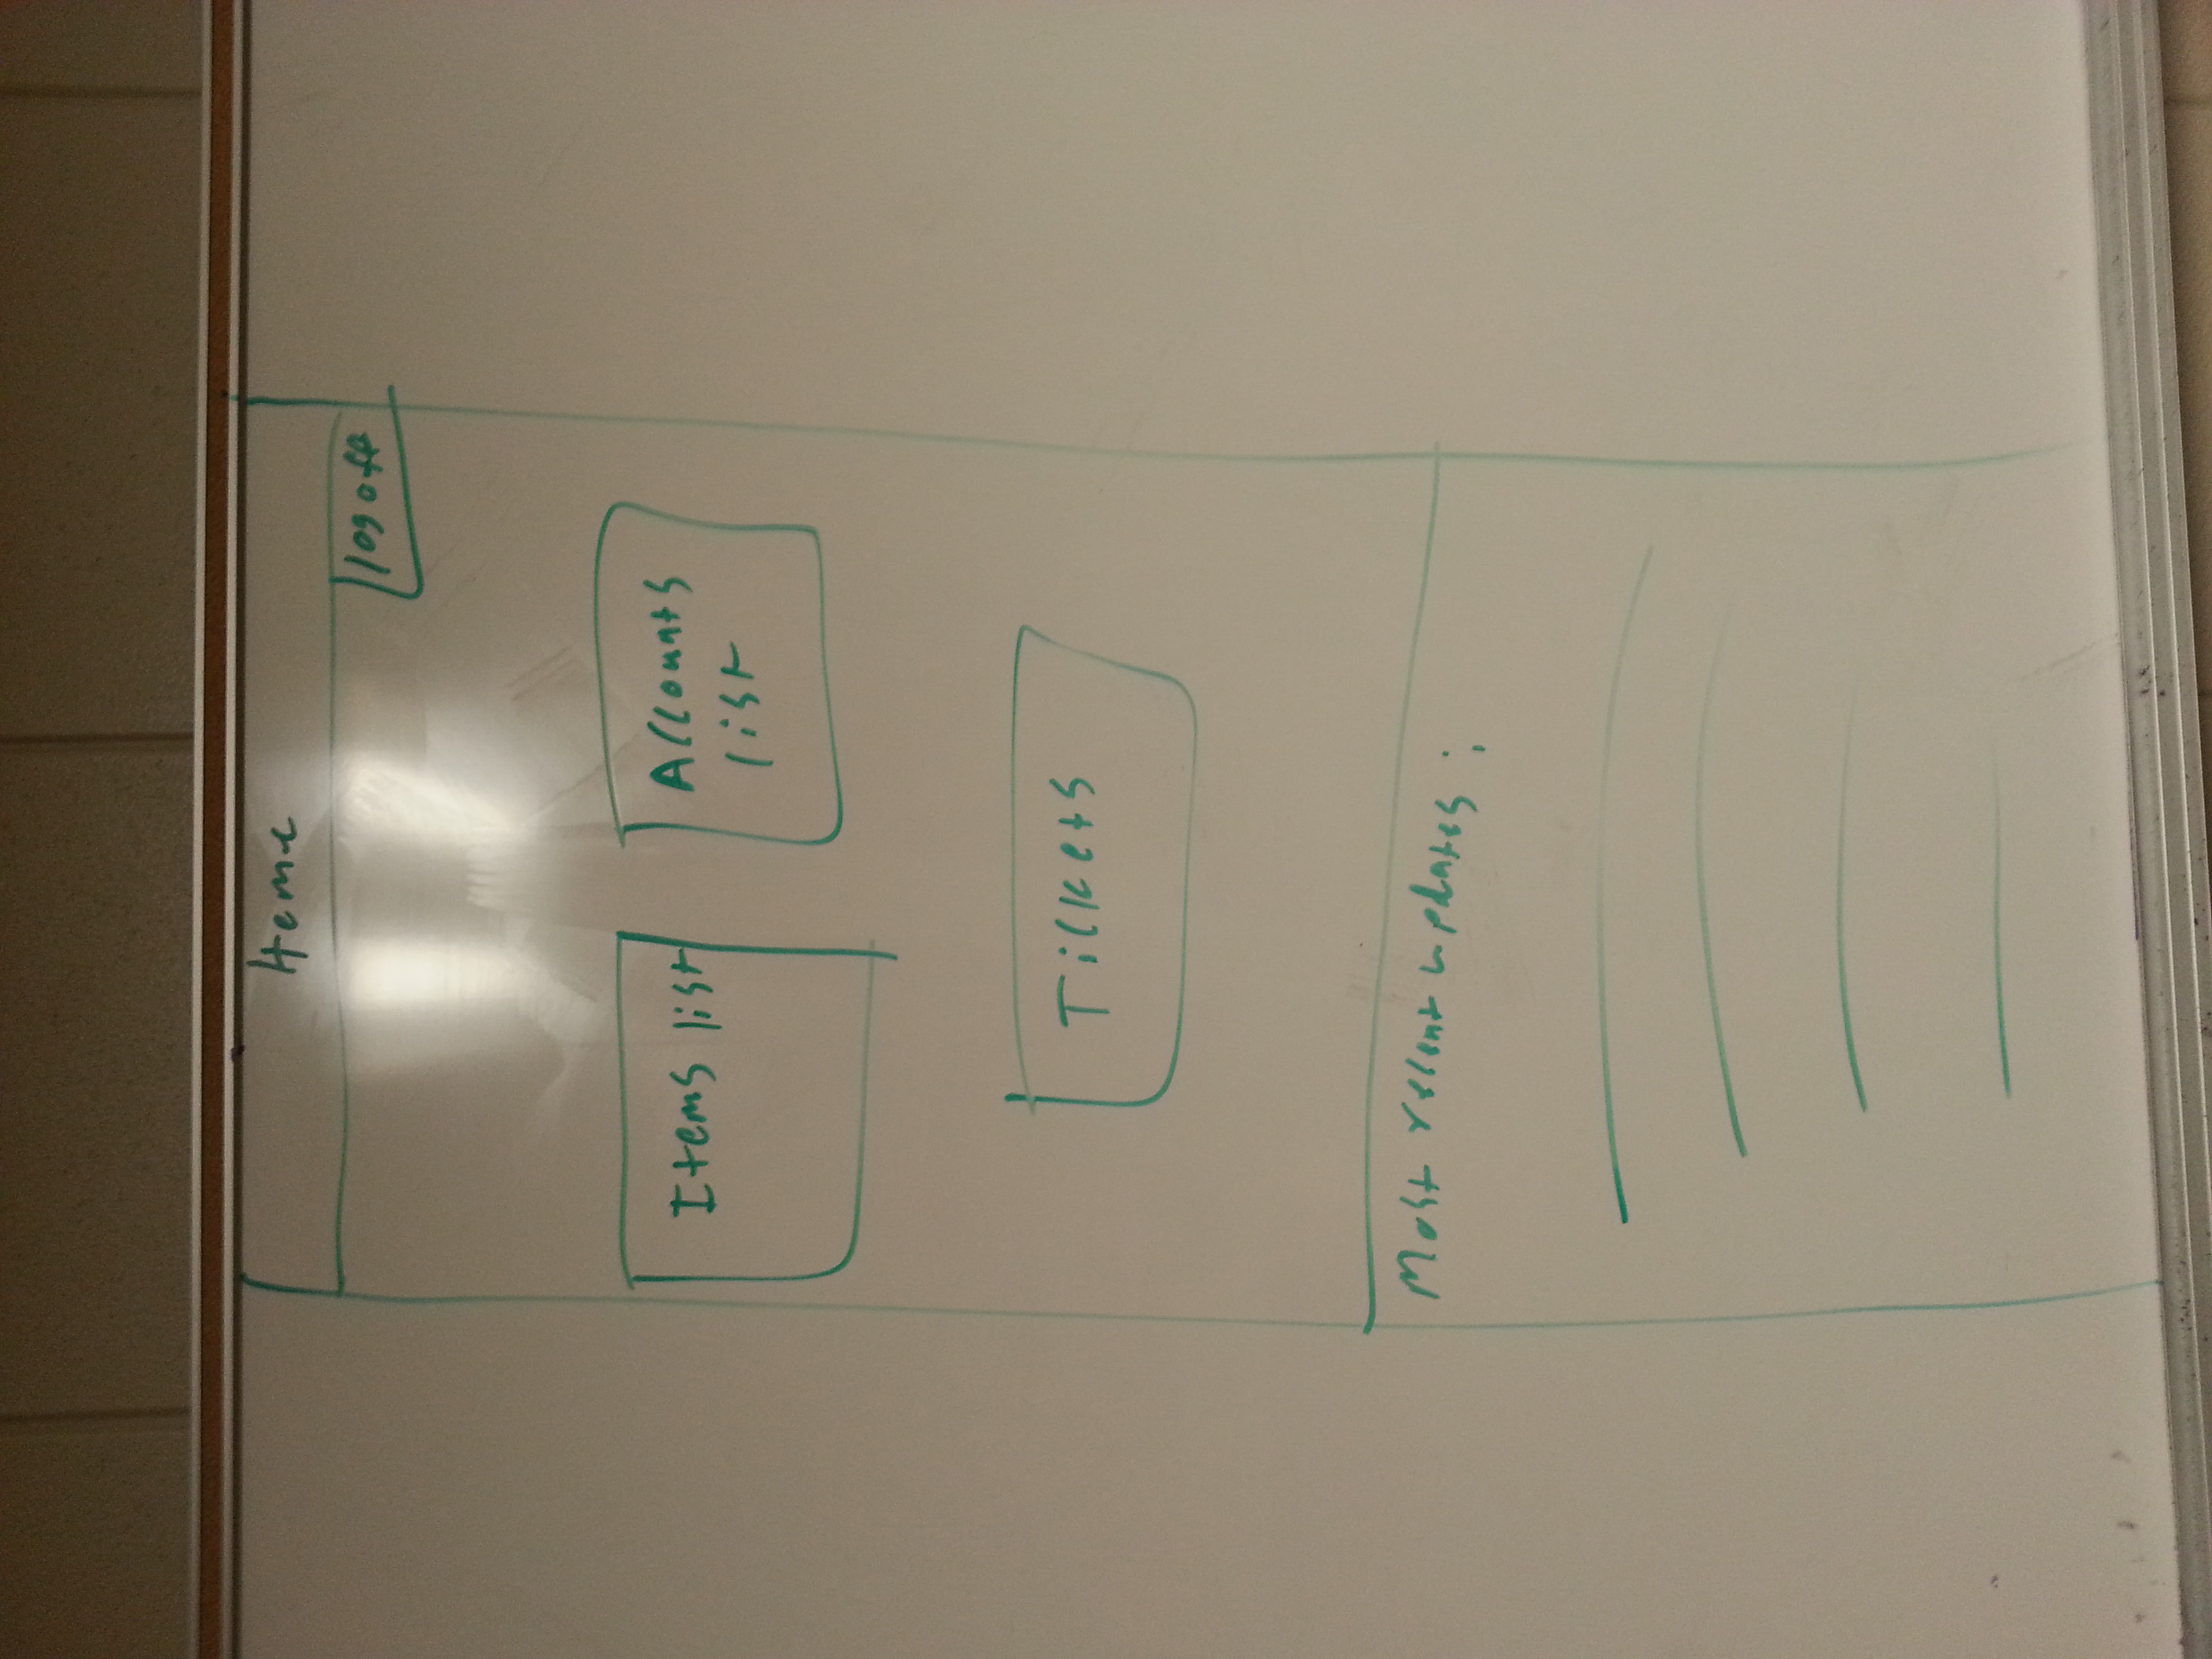 Home
log off
Items list
Accounts
list
Tickets
Most recent updates :